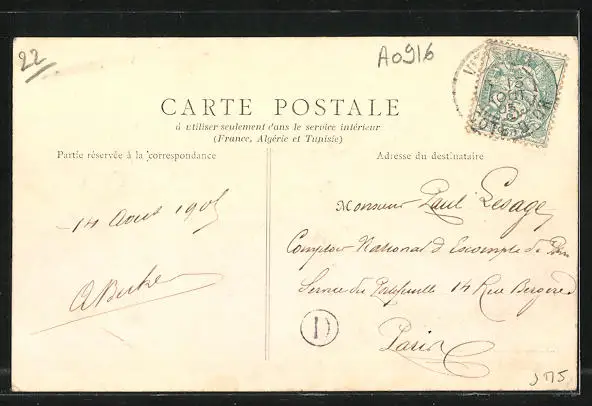 22
A0916
15
CARTE POSTALE
à utiliser seulement dans le service intérieur
(France, Algérie et Tunisie)
Partie réservée à la correspondance
Adresse du destinataire
14 Aout 1905
Monsieur Paul Lesage
Comptoir National d'Escompte de Paris
Service du Portefeuille 14 Rue Bergère
D
Paris